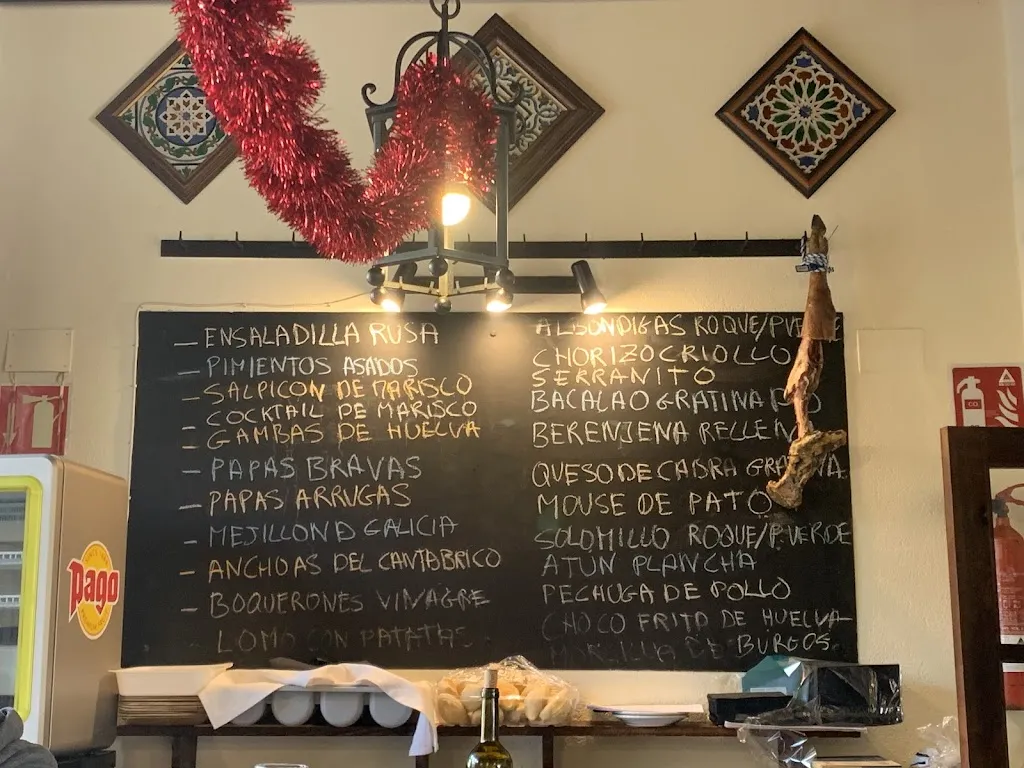 — ENSALADILLA RUSA
— PIMIENTOS ASADOS
— SALPICON DE MARISCO
— COCKTAIL DE MARISCO
— GAMBAS DE HUELVA
— PAPAS BRAVAS
— PAPAS ARRUGAS
— MEJILLOND GALICIA
— ANCHOAS DEL CANTABRICO
— BOQUERONES VINAGRE
LOMO CON PATATAS
ALBONDIGAS ROQUE/PVERDE
CHORIZO CRIOLLO
SERRANITO
BACALAO GRATINADO
BERENJENA RELLEN
QUESO DE CABRA GRATINA
MOUSE DE PATO
SOLOMILLO ROQUE/P.VERDE
ATUN PLANCHA
PECHUGA DE POLLO
CHOCO FRITO DE HUELVA
MORCILLA DE BURGOS
Pago